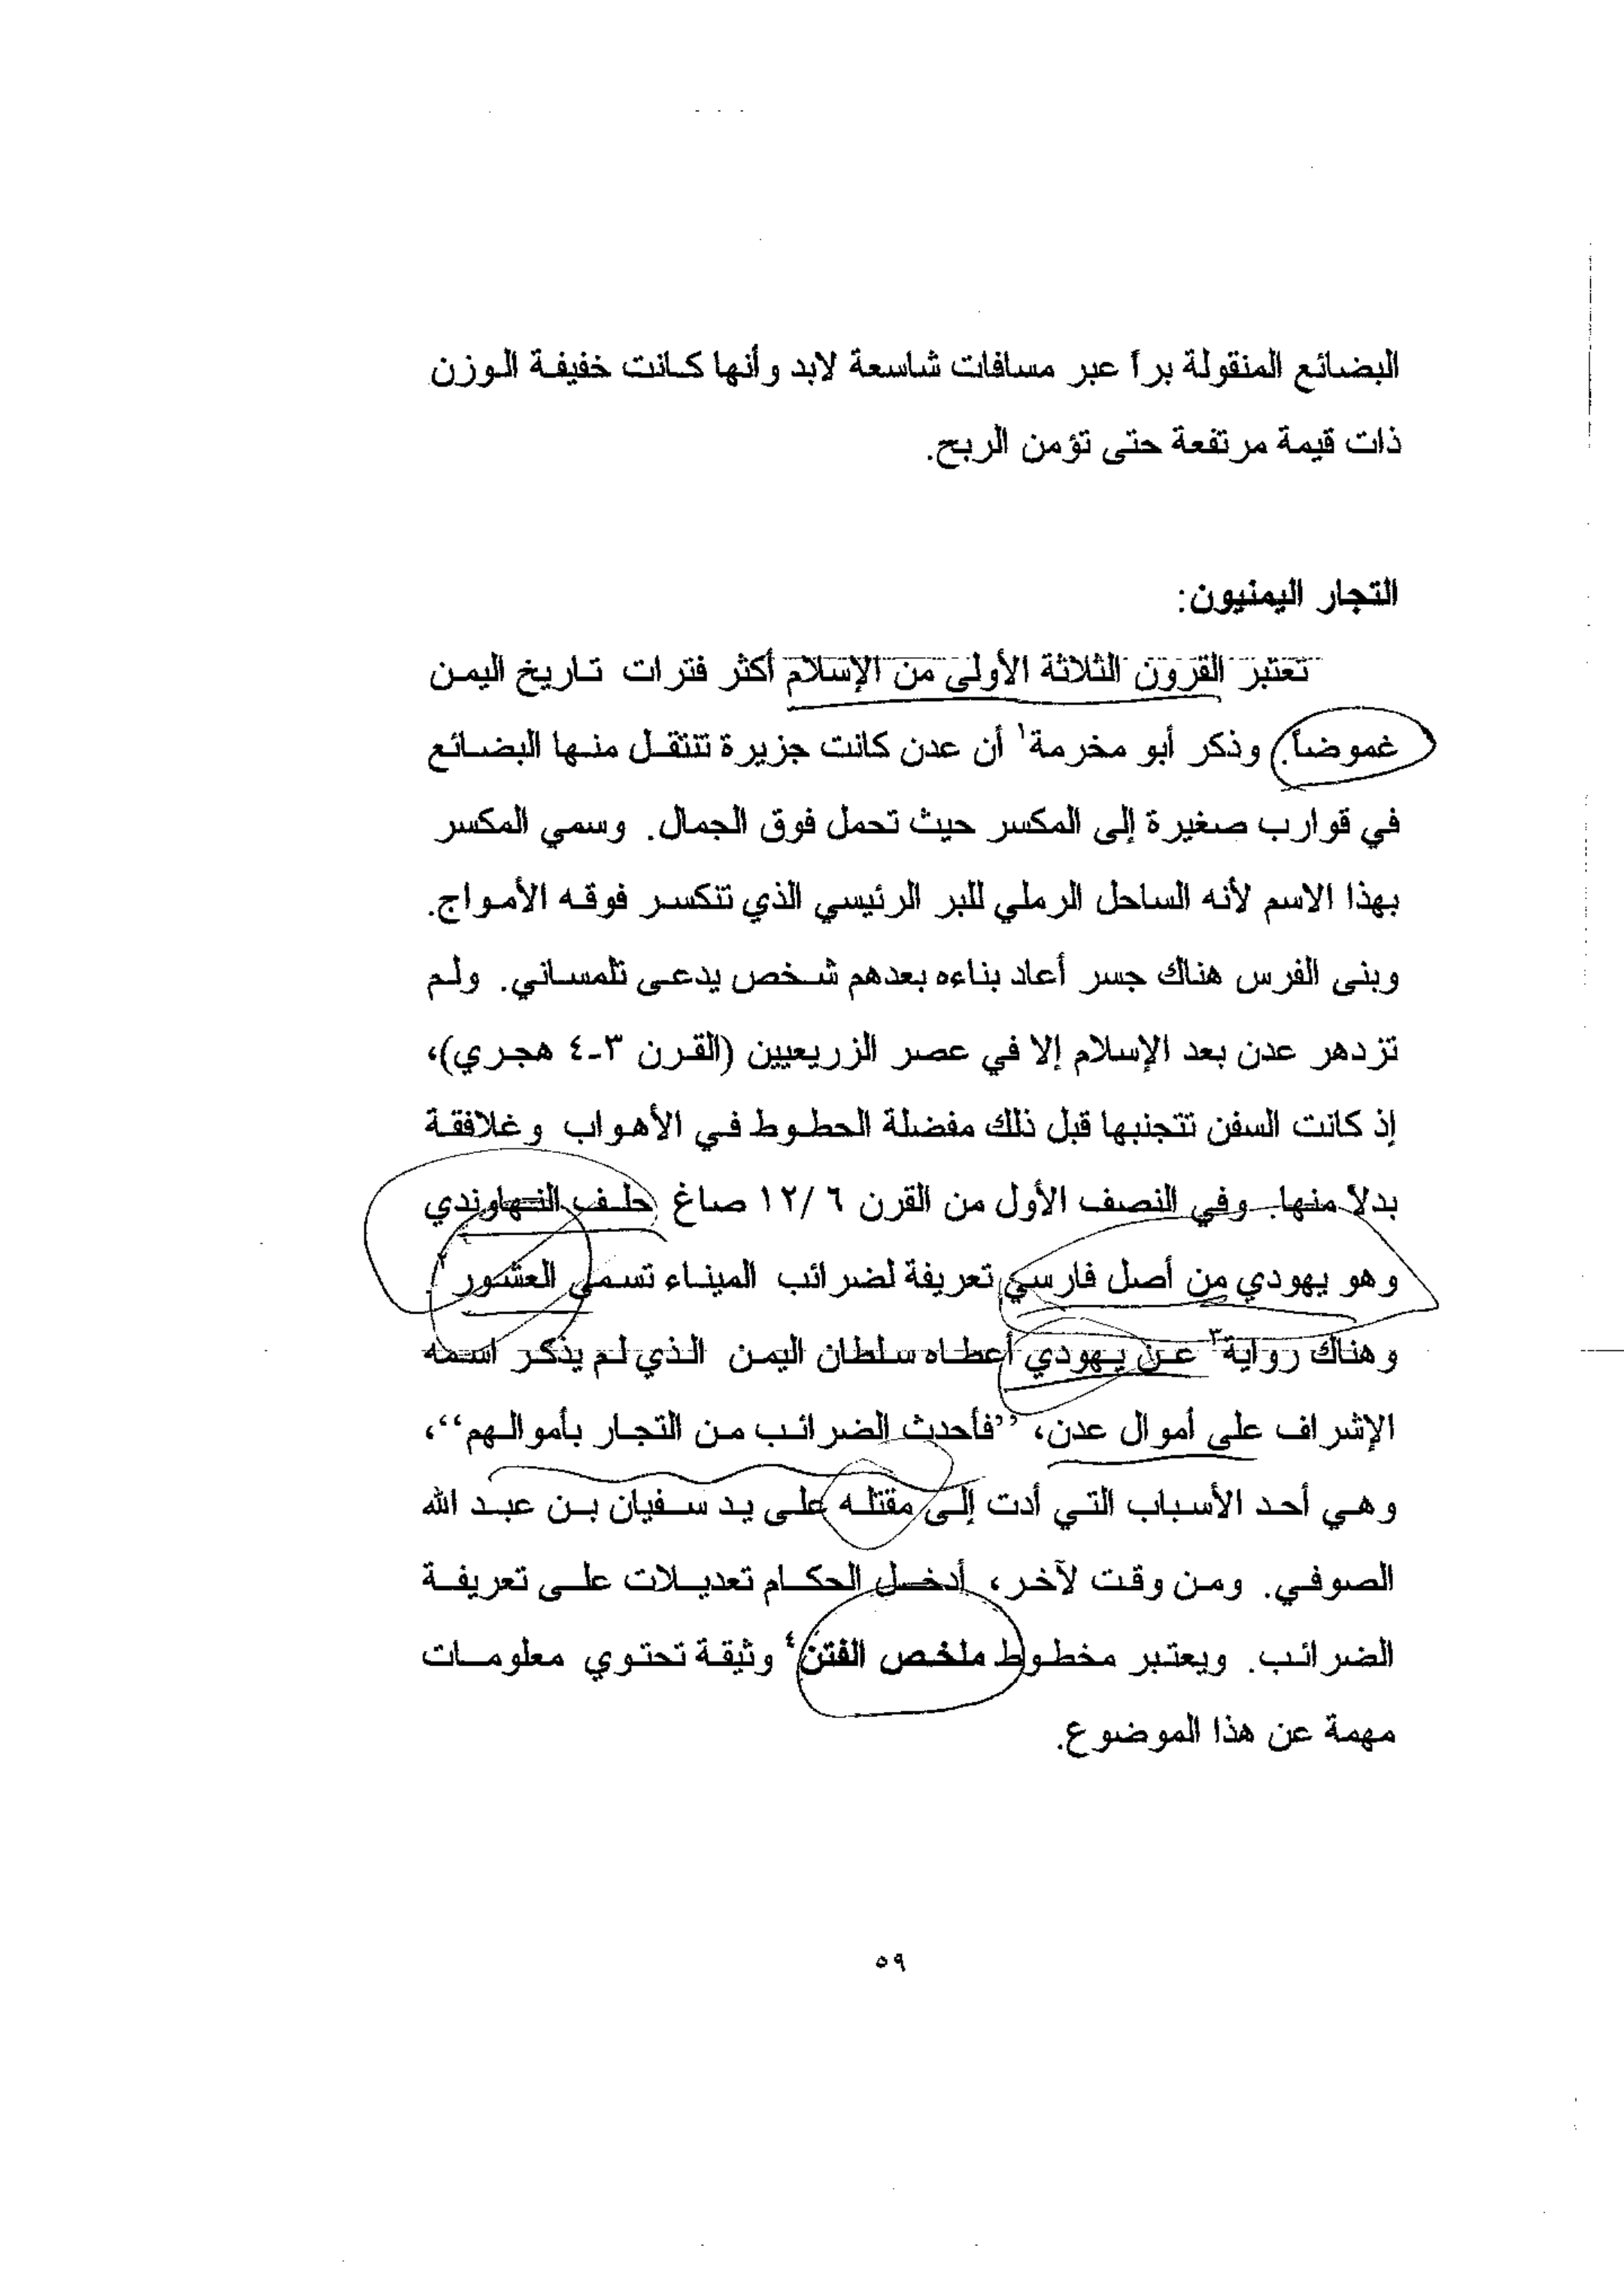 البضائع المنقولة براً عبر مسافات شاسعة لابد وأنها كانت خفيفة الوزن
ذات قيمة مرتفعة حتى تؤمن الربح.
التجار اليمنيون:
تعتبر القرون الثلاثة الأولى من الإسلام أكثر فترات تاريخ اليمن
غموضاً. وذكر أبو مخرمة١ أن عدن كانت جزيرة تنتقل منها البضائع
في قوارب صغيرة إلى المكسر حيث تحمل فوق الجمال. وسمي المكسر
بهذا الاسم لأنه الساحل الرملي للبر الرئيسي الذي تتكسر فوقه الأمواج.
وبنى الفرس هناك جسر أعاد بناءه بعدهم شخص يدعى تلمساني. ولم
تزدهر عدن بعد الإسلام إلا في عصر الزريعيين (القرن ٣-٤ هجري)،
إذ كانت السفن تتجنبها قبل ذلك مفضلة الحطوط في الأهواب وغلافقة
بدلاً منها. وفي النصف الأول من القرن ٦ /١٢ صاغ حلف النهاوندي
وهو يهودي من أصل فارسي تعريفة لضرائب الميناء تسمى العشور٢.
وهناك رواية٣ عن يهودي أعطاه سلطان اليمن الذي لم يذكر اسمه
الإشراف على أموال عدن، ’’فأحدث الضرائب من التجار بأموالهم‘‘،
وهي أحد الأسباب التي أدت إلى مقتله على يد سفيان بن عبد الله
الصوفي. ومن وقت لآخر، أدخل الحكام تعديلات على تعريفة
الضرائب. ويعتبر مخطوط ملخص الفتن٤ وثيقة تحتوي معلومات
مهمة عن هذا الموضوع.
٥٩